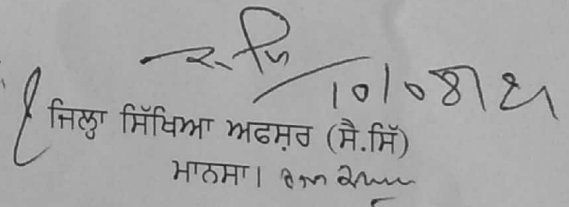 10/08/21
ਜਿਲ੍ਹਾ ਸਿੱਖਿਆ ਅਫਸ਼ਰ (ਸੈ.ਸਿੱ)
ਮਾਨਸਾ।